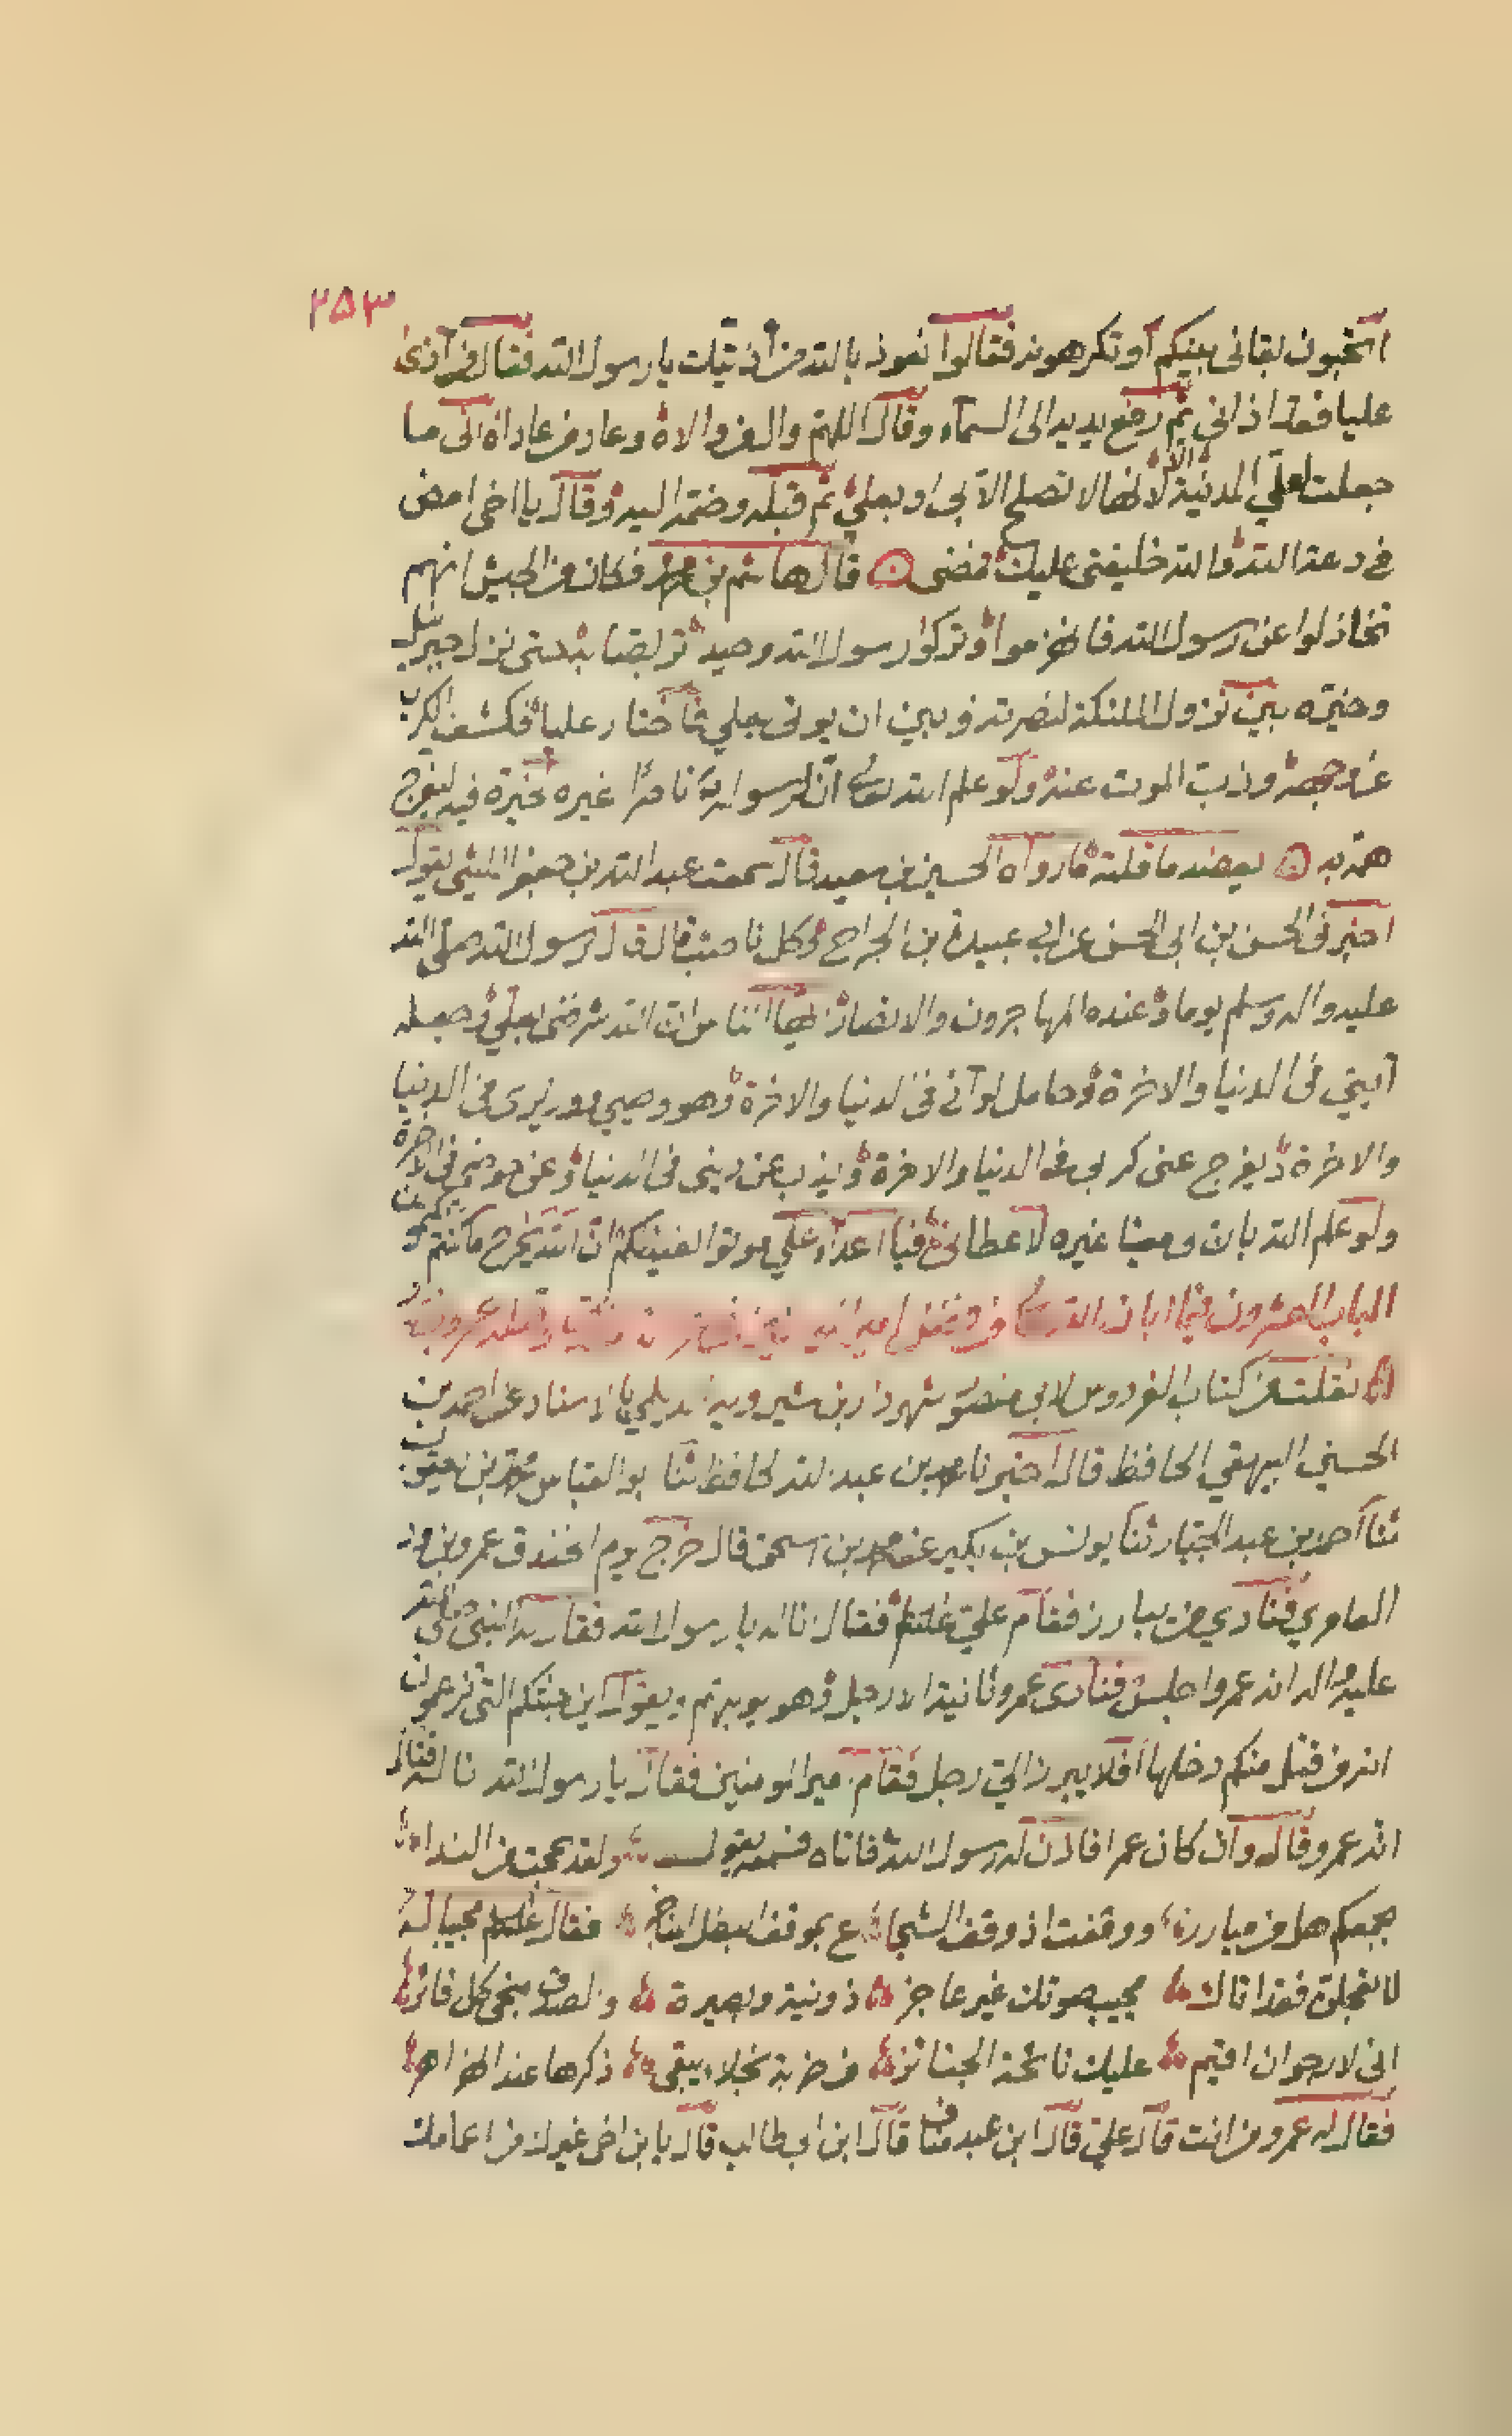 ٢٥٣
اتحبون بقائى بينكم او تكرهونه فقالوا نعوذ بالله من اذيتك يا رسول الله فقال من آذى
عليا فقد اذانى ثم رفع يديه الى السماء وقال اللهم وال من والاه وعاد من عاداه انى ما
جعلت لعلي المدينة الا لانها لا تصلح الا بى او بعلي ثم قبله وضمه اليه وقال يا اخى امض
فى دعة الله والله خليفتى عليك فمضى قال هاشم بن محمد فكان من الجيش انهم
تخاذلوا عن رسول الله فانهزموا وتركوا رسول الله وحيدا حتى نزل جبرئيل
وخيره بين نزول الملئكة لنصرته وبين ان يوتى بعلي فاختار عليا فكشف الكرب
عن وجهه وذب الموت عنه ولو علم الله تعالى ان لرسوله ناصرا غيره لخيره فيه ليفرج
همه به يعضد ما قلته ما رواه الحسين بن سعيد قال سمعت عبد الله بن جعفر الليثى يقول
اخبرنى الحسن بن ابى الحسن عن ابي عبيدة بن الجراح وكل ناصب قال قال رسول الله صلى الله
عليه واله وسلم يوما وعنده المهاجرون والانصار ايها الناس ان الله شرفنى بعلي وجعله
امينى فى الدنيا والاخرة وحامل لوائى فى الدنيا والاخرة وهو وصيي ووزيرى فى الدنيا
والاخرة ويفرج عنى كربى فى الدنيا والاخرة ويذب عن دينى فى الدنيا وعن حوضى فى الاخرة
ولو علم الله بان وصيا غيره لاعطانى فيا اعداء علي موتوا بغيظكم ان الله يخرج ما كنتم تكتمون
الباب العشرون فيما ابان الله من فضل امير المؤمنين
نقلت من كتاب الفردوس لابى منصور شهردار بن شيرويه الديلمي بالاسناد عن احمد بن
الحسين البيهقي الحافظ قال اخبرنا محمد بن عبد الله الحافظ ثنا ابو العباس محمد بن يعقوب
ثنا احمد بن عبد الجبار ثنا يونس بن بكير عن محمد بن اسحق قال خرج يوم الخندق عمرو بن ود
العامري فنادي من يبارز فقام علي فقال انا له يا رسول الله فقال له النبى صلى الله
عليه واله انه عمرو اجلس فنادى عمرو ثانية الا رجل وهو يوبخهم ويقول اين جنتكم التى تزعمون
انه من قتل منكم دخلها افلا يبرز الي رجل فقام امير المومنين فقال يا رسول الله انا له فقال
انه عمرو قال وان كان عمرا فاذن له رسول الله فاتاه فسمعه يقول ولقد بححت من النداء
بجمعكم هل من مبارز ووقفت اذ وقف الشجاع بموقف البطل المناجز فقال مجيبا له
لا تعجلن فقد اتاك مجيب صوتك غير عاجز ذو نية وبصيرة والصدق منجى كل فائز
انى لارجو ان اقيم عليك نائحة الجنائز من ضربة نجلاء يبقى ذكرها عند الهزاهز
فقال له عمرو من انت قال علي قال ابن عبد مناف قال ابن ابى طالب قال يا بن اخى غيرك من اعمامك